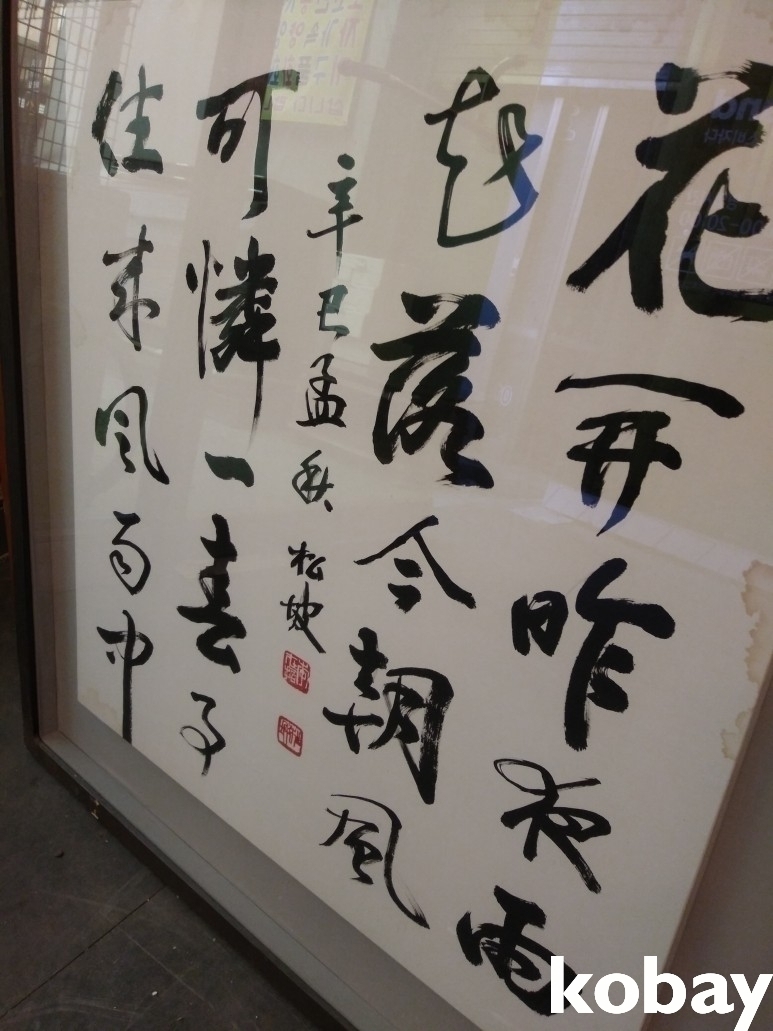 花開昨夜雨
花落今朝風
辛巳孟秋 松坡
可憐一春事
往來風雨中
kobay